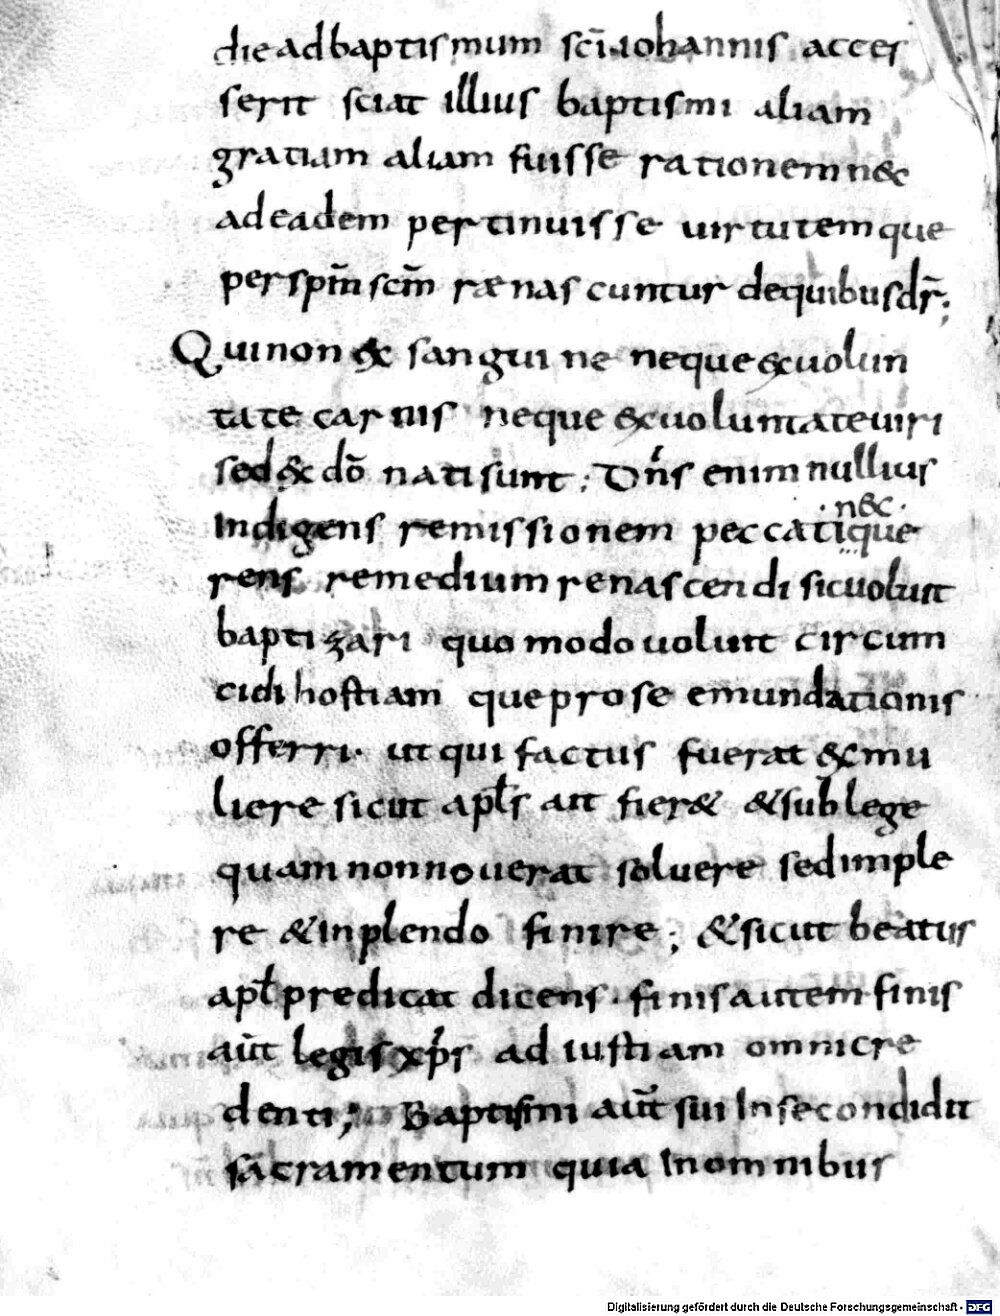 die ad baptismum sc̄i iohannis acces
serit sciat illius baptismi aliam
gratiam aliam fuisse rationem n&c
ad eadem pertinuisse uirtutem que
per sp̄m sc̄m rænascuntur de quibus dr̄;
Qui non &c sanguine neque &c uolun
tate carnis neque &c uoluntate uiri
sed &c dō nati sunt; Dn̄s enim nullius
indigens remissionem peccati que
·n&c·
rens remedium renascendi sic uoluit
baptizari quomodo uoluit circum
cidi hostiam que pro se emundationis
offerri. ut qui factus fuerat &c mu
liere sicut apl̄s ait fier& & sub lege
quam non nouerat soluere sed imple
re & inplendo finire; & sicut beatus
apl̄ predicat dicens. finis autem finis
aūt legis xp̄s ad iustiam omni cre
denti; Baptismi aūt sui in se condidit
sacramentum quia in omnibus
Digitalisierung gefördert durch die Deutsche Forschungsgemeinschaft - DFG